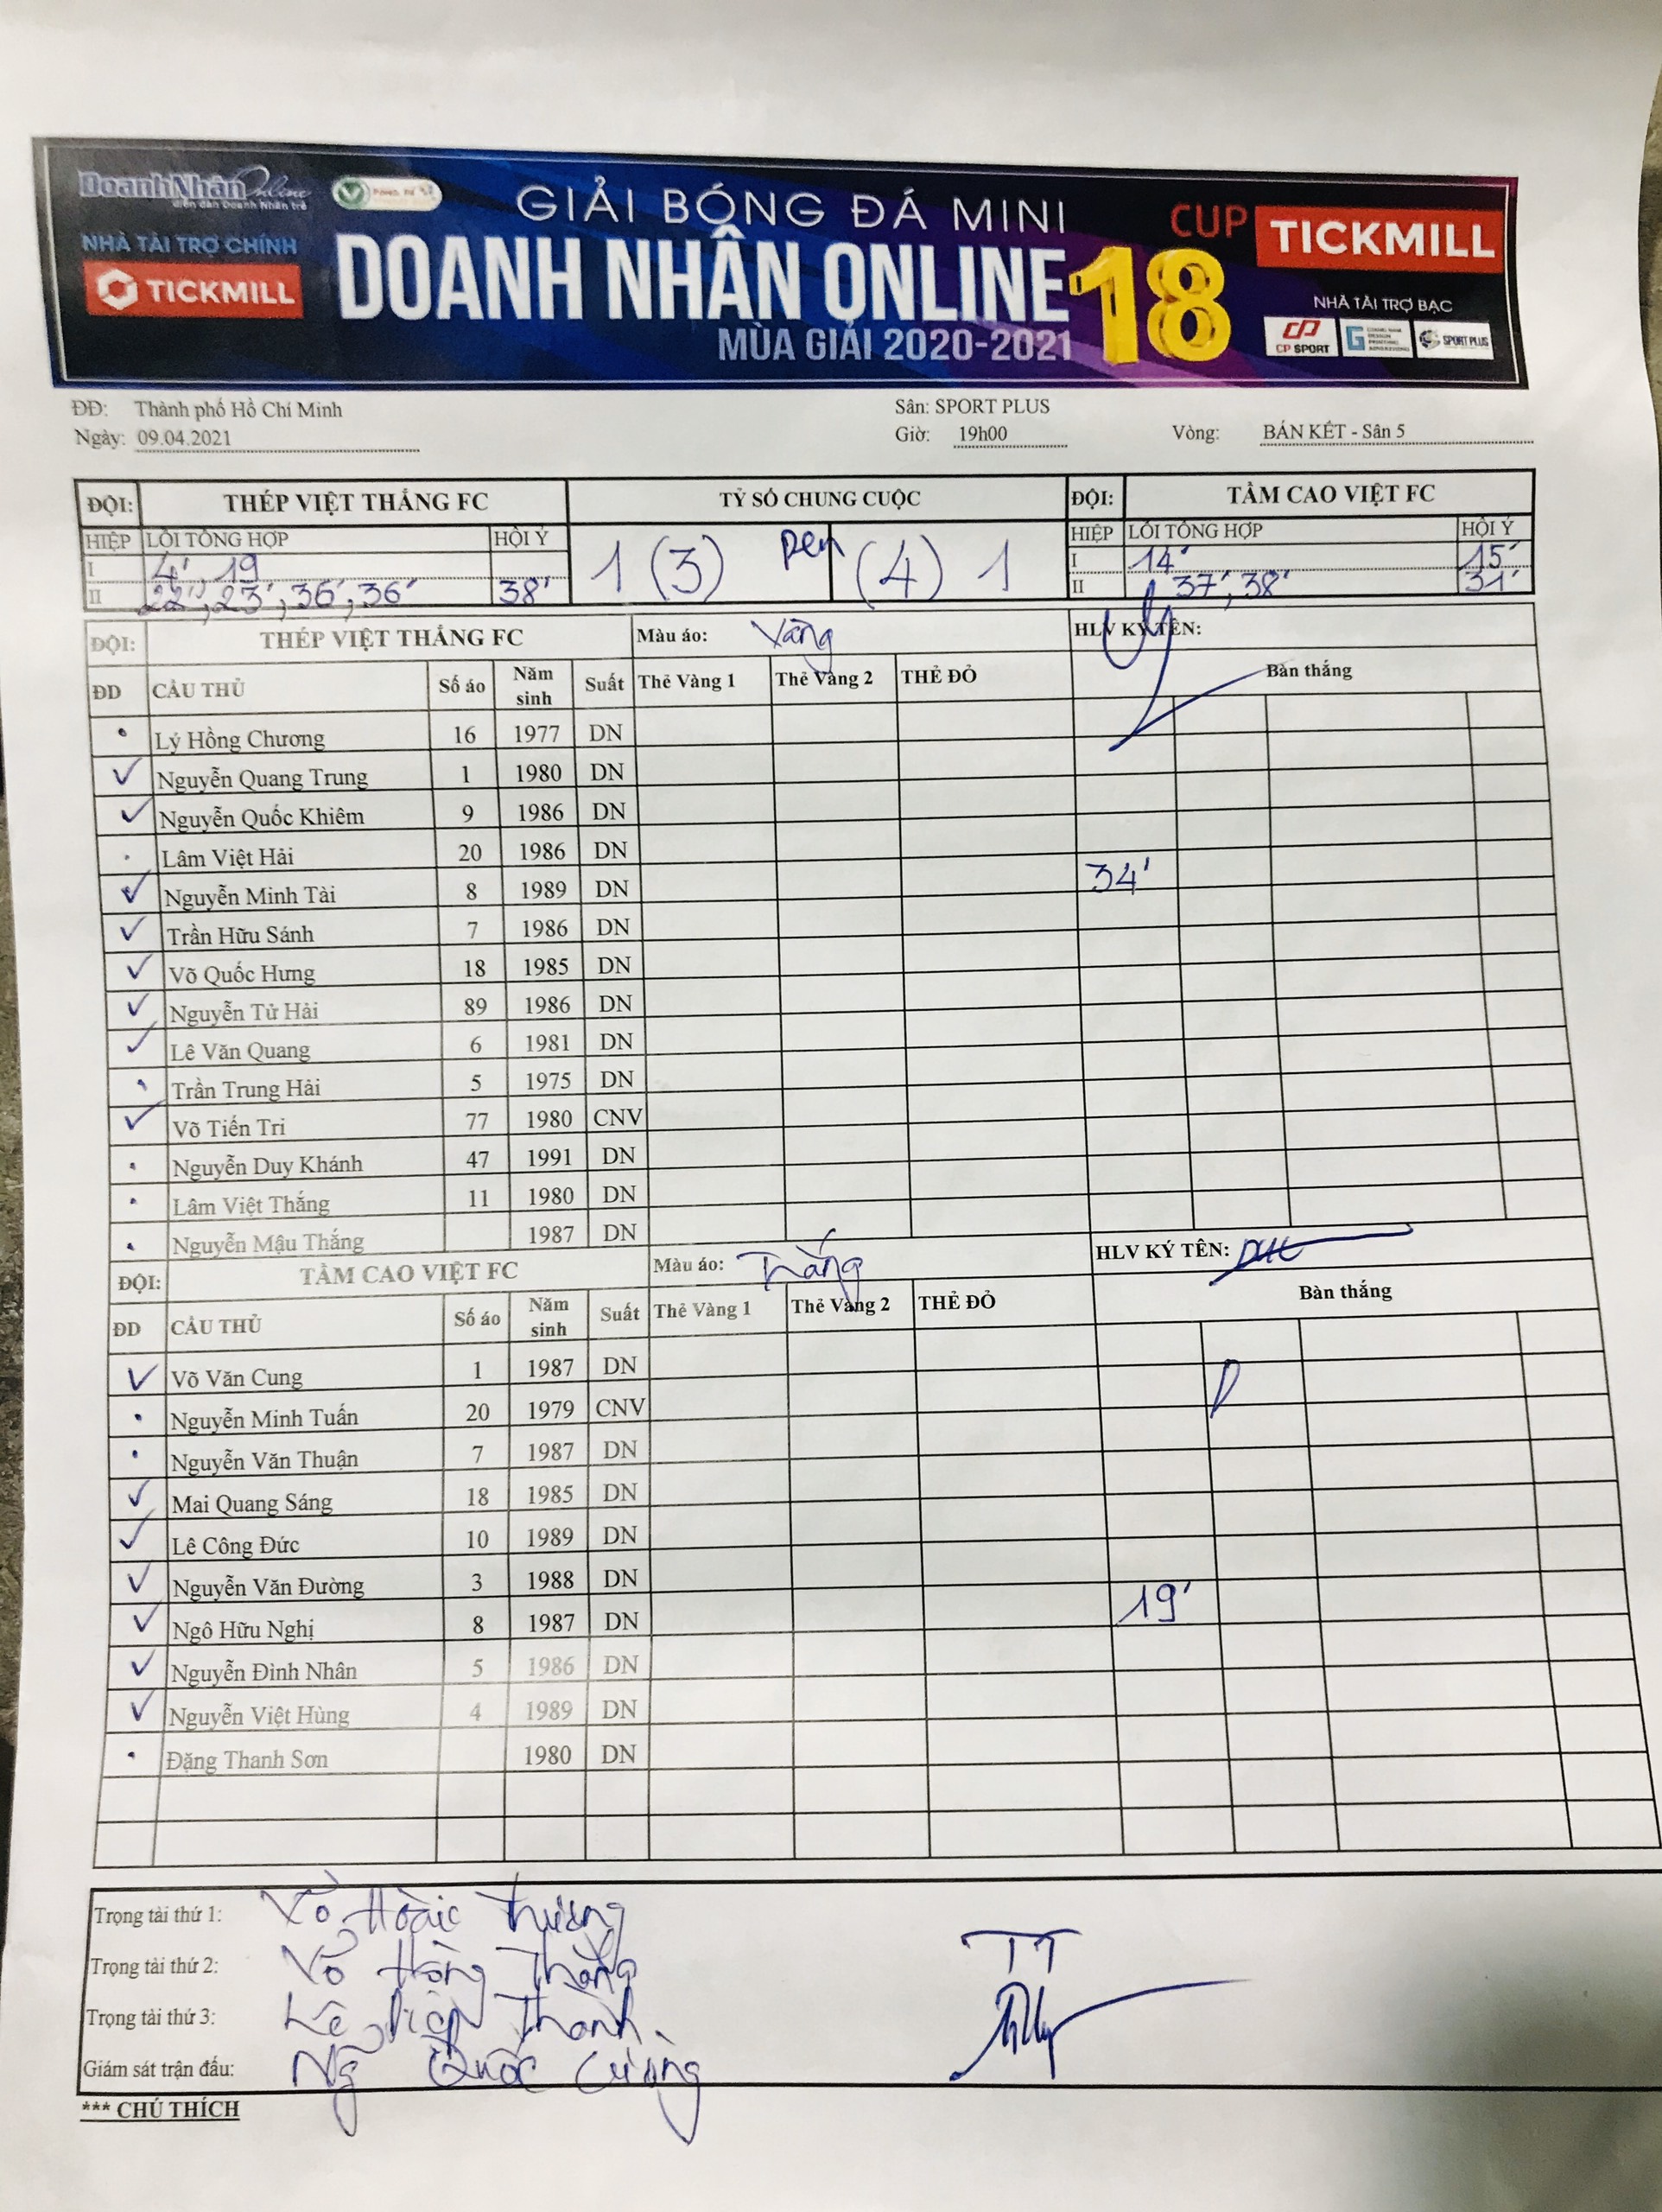 DoanhNhân Online
diễn đàn Doanh Nhân trẻ
NHÀ TÀI TRỢ CHÍNH
TICKMILL
GIẢI BÓNG ĐÁ MINI
DOANH NHÂN ONLINE 18
MÙA GIẢI 2020-2021
CUP TICKMILL
NHÀ TÀI TRỢ BẠC
CP SPORT
SPORT PLUS
ĐĐ: Thành phố Hồ Chí Minh Sân: SPORT PLUS
Ngày: 09.04.2021 Giờ: 19h00 Vòng: BÁN KẾT - Sân 5
ĐỘI: THÉP VIỆT THẮNG FC TỶ SỐ CHUNG CUỘC ĐỘI: TẦM CAO VIỆT FC
HIỆP LỖI TỔNG HỢP HỘI Ý 1 (3) pen (4) 1 HIỆP LỖI TỔNG HỢP HỘI Ý
I 4', 19 I 14' 15'
II 22', 23', 36', 36' 38' II 37', 38' 31'
ĐỘI: THÉP VIỆT THẮNG FC Màu áo: Vàng HLV KÝ TÊN:
ĐD CẦU THỦ Số áo Năm sinh Suất Thẻ Vàng 1 Thẻ Vàng 2 THẺ ĐỎ Bàn thắng
Lý Hồng Chương 16 1977 DN
Nguyễn Quang Trung 1 1980 DN
Nguyễn Quốc Khiêm 9 1986 DN
Lâm Việt Hải 20 1986 DN
Nguyễn Minh Tài 8 1989 DN 34'
Trần Hữu Sánh 7 1986 DN
Võ Quốc Hưng 18 1985 DN
Nguyễn Tử Hải 89 1986 DN
Lê Văn Quang 6 1981 DN
Trần Trung Hải 5 1975 DN
Võ Tiến Tri 77 1980 CNV
Nguyễn Duy Khánh 47 1991 DN
Lâm Việt Thắng 11 1980 DN
Nguyễn Mậu Thắng 1987 DN
ĐỘI: TẦM CAO VIỆT FC Màu áo: Trắng HLV KÝ TÊN:
ĐD CẦU THỦ Số áo Năm sinh Suất Thẻ Vàng 1 Thẻ Vàng 2 THẺ ĐỎ Bàn thắng
Võ Văn Cung 1 1987 DN
Nguyễn Minh Tuấn 20 1979 CNV
Nguyễn Văn Thuận 7 1987 DN
Mai Quang Sáng 18 1985 DN
Lê Công Đức 10 1989 DN
Nguyễn Văn Đường 3 1988 DN
Ngô Hữu Nghị 8 1987 DN 19'
Nguyễn Đình Nhân 5 1986 DN
Nguyễn Việt Hùng 4 1989 DN
Đặng Thanh Sơn 1980 DN
Trọng tài thứ 1: Võ Hoài Thương
Trọng tài thứ 2: Võ Hồng Thắng TT
Trọng tài thứ 3: Lê Thanh
Giám sát trận đấu: Ng Quốc Cường
*** CHÚ THÍCH